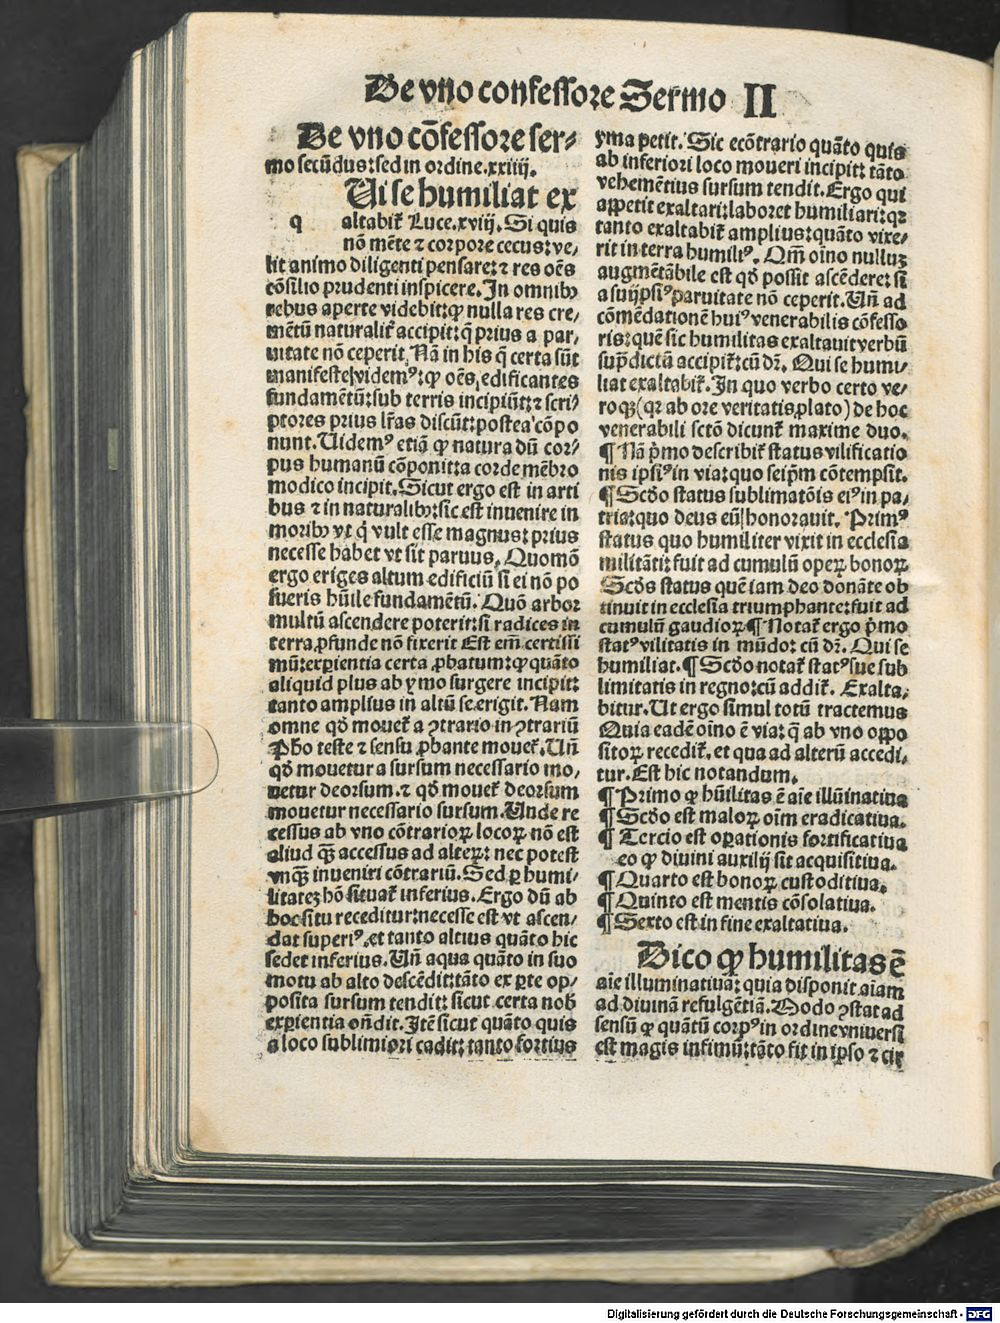 De vno confessore Sermo II
De vno cōfessore ser⸗
mo secūdus: sed in ordine .xxiiij.
Ui se humiliat ex
q altabiť Luce .xviij. Si quis
nō mēte ⁊ corpore cecus: ve⸗
lit animo diligenti pensare: ⁊ res oēs
cōsilio prudenti inspicere. In omnibꝰ
rebus aperte videbit: ꝙ nulla res cre⸗
mētū naturalit̄ accipit: q̄ prius a par⸗
uitate nō ceperit. Nā in his q̄ certa sūt
manifeste videmꝰ: ꝙ oēs edificantes
fundamētū: sub terris incipiūt: ⁊ scri⸗
ptores prius lr̄as discūt: postea cōpo
nunt. Uidemꝰ etiā ꝙ natura dū cor⸗
pus humanū cōponit: a corde mēbro
modico incipit. Sicut ergo est in arti
bus ⁊ in naturalibꝰ: sic est inuenire in
moribꝰ vt q̇ vult esse magnus: prius
necesse habet vt sit paruus. Quomō
ergo eriges altum edificiū si ei nō po
sueris hūile fundamētū. Quō arbor
multū ascendere poterit: si radices in
terra ꝓfunde nō fixerit Est em̄ certissi
mū: exꝑientia certa ꝓbatum: ꝙ quāto
aliquid plus ab ymo surgere incipit:
tanto amplius in altū se erigit. Nam
omne qd̄ mouet̄ a ꝯtrario in ꝯtrariū
Pho teste ⁊ sensu ꝓbante mouet̄. Un̄
qd̄ mouetur a sursum necessario mo⸗
uetur deorsum. ⁊ qd̄ mouet̄ deorsum
mouetur necessario sursum. Unde re
cessus ab vno cōtrarioꝝ locoꝝ nō est
aliud qȝ accessus ad alteꝝ: nec potest
vnqȝ inueniri cōtrariū. Sed ꝑ humi⸗
litatē hō situat̄ inferius. Ergo dū ab
hoc situ receditur: necesse est vt ascen⸗
dat superiꝰ. et tanto altius quāto hic
sedet inferius. Un̄ aqua quāto in suo
motu ab alto descēdit: tāto ex ꝑte op⸗
posita sursum tendit: sicut certa nob̄
exꝑientia on̄dit. Itē sicut quāto quis
a loco sublimiori cadit: tanto fortius
yma petit. Sic ecōtrario quāto quis
ab inferiori loco moueri incipit: tāto
vehemētius sursum tendit. Ergo qui
appetit exaltari: laboret humiliari: qꝛ
tanto exaltabit̄ amplius: quāto vixe⸗
rit in terra humiliꝰ. Qm̄ oīno nulluȝ
augmētābile est qd̄ possit ascēdere: si
a suijpsiꝰ paruitate nō ceperit. Un̄ ad
cōmēdationē huiꝰ venerabilis cōfesso
ris: quē sic humilitas exaltauit verbū
sup̄dictū accipit̄: cū dr̄. Qui se humi⸗
liat exaltabit̄. In quo verbo certo ve⸗
roqȝ (qꝛ ab ore veritatis ꝓlato) de hoc
venerabili sctō dicunt̄ maxime duo.
¶ Nā p̄mo describit̄ status vilificatio
nis ipsiꝰ in via: quo seip̄m cōtempsit.
¶ Scdo status sublimatōis eiꝰ in pa⸗
tria: quo deus eū honorauit. Primꝰ
status quo humiliter vixit in ecclesia
militāti: fuit ad cumulū opeꝝ bonoꝝ.
Scds status quē iam deo donāte ob
tinuit in ecclesia triumphante: fuit ad
cumulū gaudioꝝ. ¶ Notat̄ ergo p̄mo
statꝰ vilitatis in mūdo: cū dr̄. Qui se
humiliat. ¶ Scdo notat̄ statꝰ sue sub
limitatis in regno: cū addit̄. Exalta⸗
bitur. Ut ergo simul totū tractemus
Quia eadē oīno ē via: q̄ ab vno oppo
sitoꝝ recedit̄. et qua ad alterū accedi⸗
tur. Est hic notandum.
¶ Primo ꝙ hūilitas ē aīe illūinatiua
¶ Scdo est maloꝝ oīm eradicatiua.
¶ Tercio est oꝑationis fortificatiua
eo ꝙ diuini auxilij sit acquisitiua.
¶ Quarto est bonoꝝ custoditiua.
¶ Quinto est mentis cōsolatiua.
¶ Sexto est in fine exaltatiua.
Dico ꝙ humilitas ē
aīe illuminatiua: quia disponit aīam
ad diuinā refulgētiā. Modo ꝯstat ad
sensū ꝙ quātū corpꝰ in ordine vniuersi
est magis infimū: tāto fit in ipso ⁊ cir
Digitalisierung gefördert durch die Deutsche Forschungsgemeinschaft - DFG